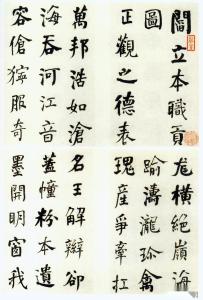 閻立本職貢
圖
正觀之德来
萬邦浩如滄
海吞河江音
容傖獰服奇
尨橫絕嶺海
踰濤瀧珎禽
瑰產爭牽扛
名王解辮卻
蓋幢粉本遺
墨開明窗我